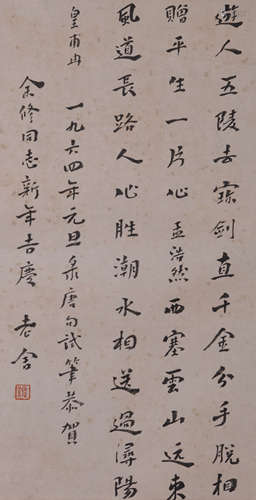 遊人五陵去寶劍直千金分手脫相
贈平生一片心孟浩然西塞雲山遠東
風道長路人心勝潮水相送過潯陽
皇甫冉
一九六四年元旦集唐句試筆恭賀
余修同志新年吉慶 老舍